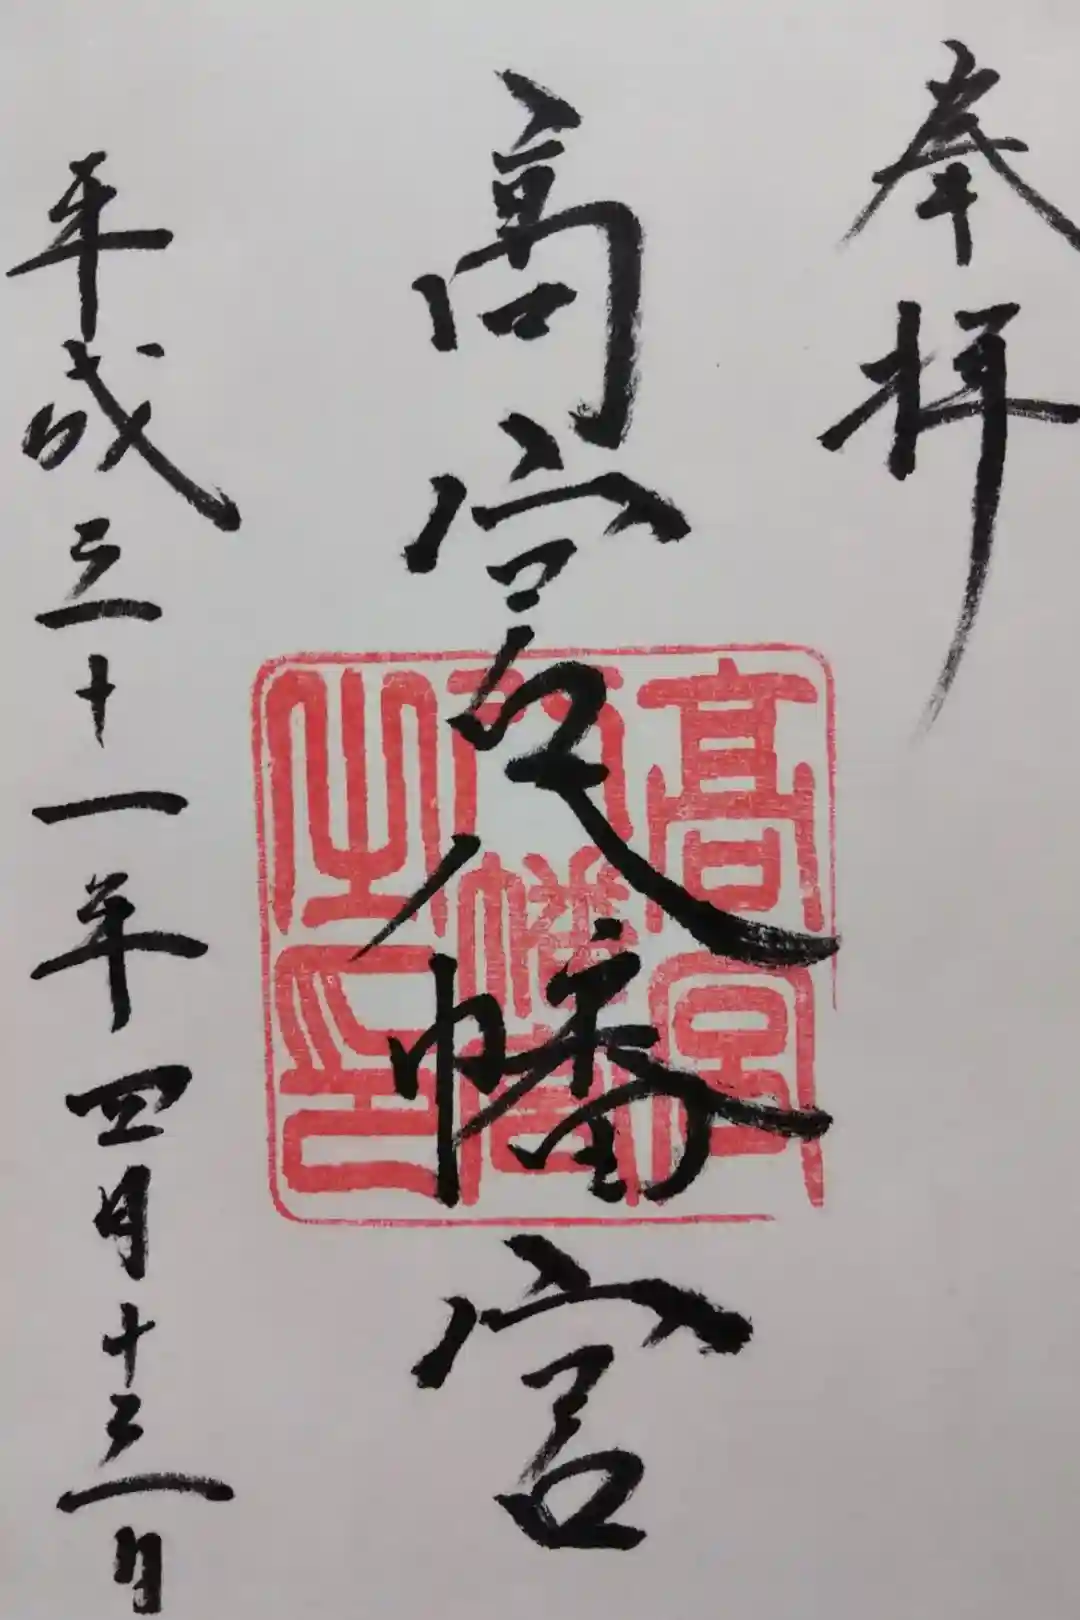 奉拝
高宮八幡宮
高宮
八幡宮
之印
平成三十一年四月十三日